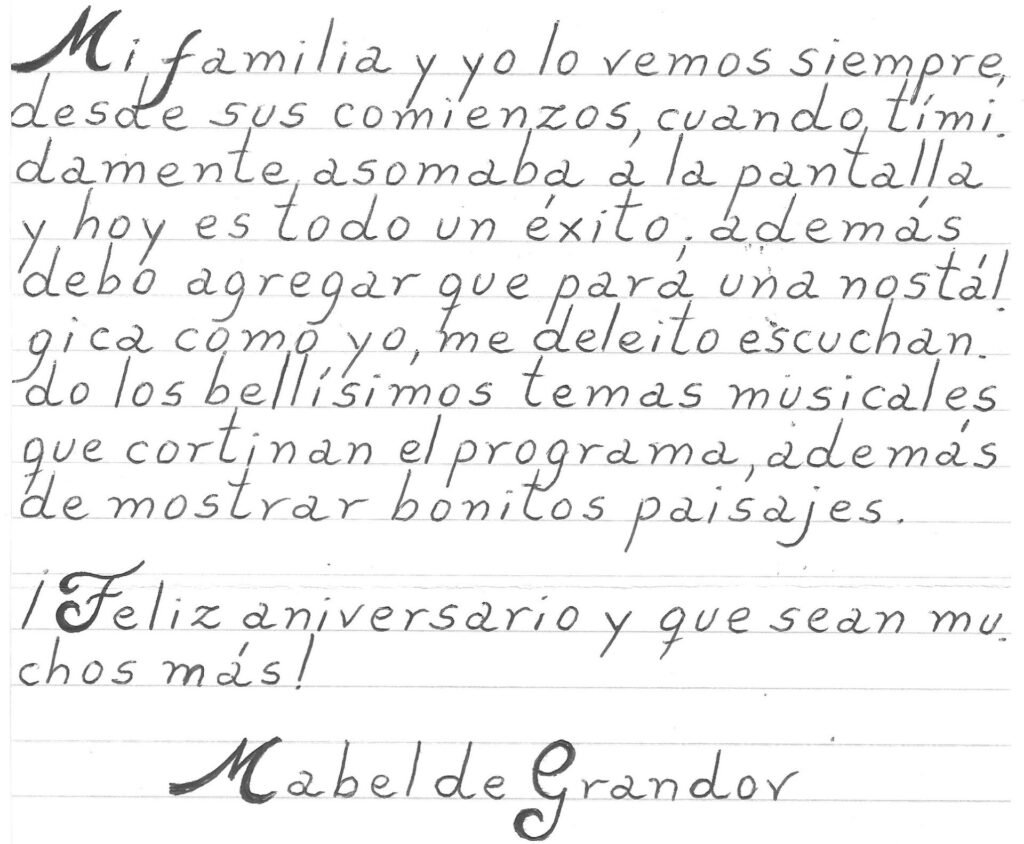 Mi familia y yo lo vemos siempre,
desde sus comienzos, cuando, tími-
damente, asomaba a la pantalla
y hoy es todo un éxito; además
debo agregar que para una nostál-
gica como yo, me deleito escuchan-
do los bellísimos temas musicales
que cortinan el programa, además
de mostrar bonitos paisajes.
¡Feliz aniversario y que sean mu-
chos más!
Mabel de Grandov